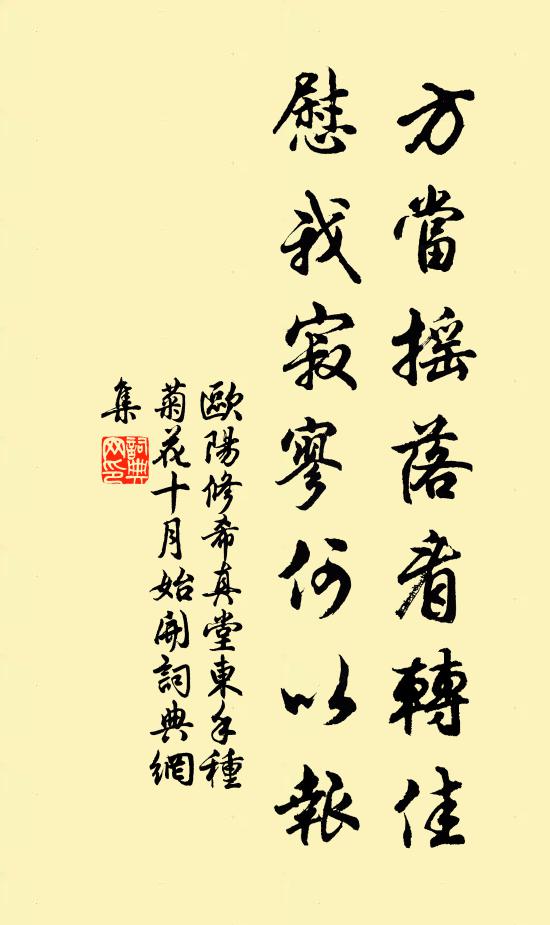 方當搖落看轉佳
慰我寂寥何以報
歐陽修希真堂東手種
菊花十月始開詞典網
集
詞典网印